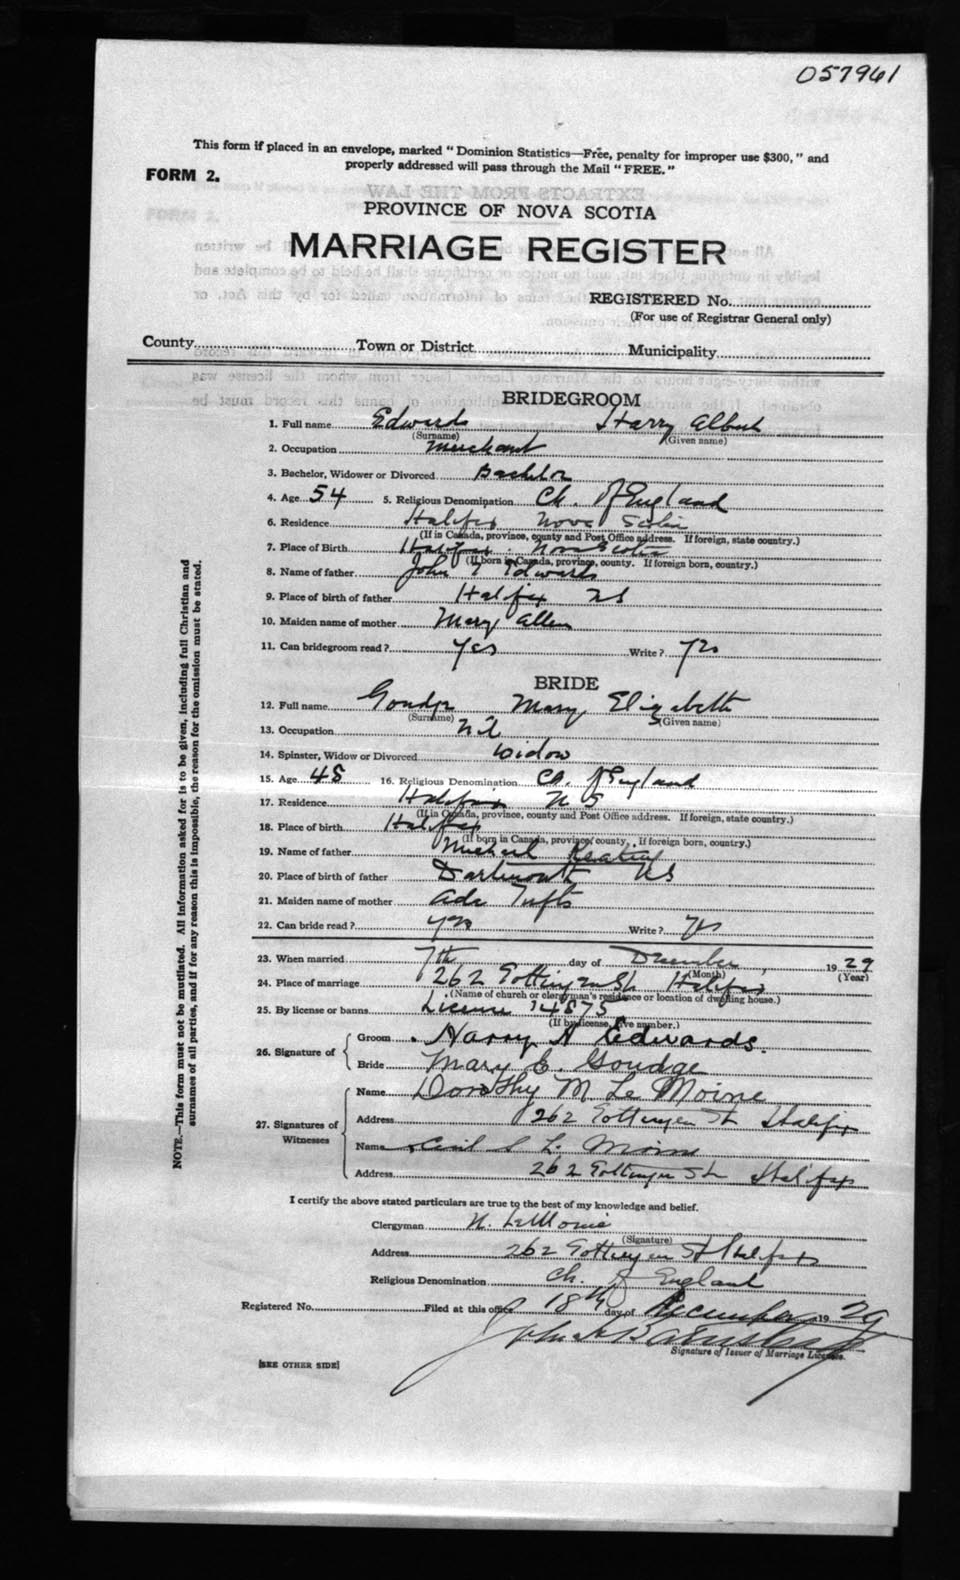 057961
This form if placed in an envelope, marked "Dominion Statistics—Free, penalty for improper use $300," and
properly addressed will pass through the Mail "FREE."
FORM 2.
PROVINCE OF NOVA SCOTIA
MARRIAGE REGISTER
REGISTERED No.
(For use of Registrar General only)
County Town or District Municipality
BRIDEGROOM
1. Full name Edwards Harry Albert
(Surname) (Given name)
2. Occupation Merchant
3. Bachelor, Widower or Divorced Bachelor
4. Age 54 5. Religious Denomination Ch. of England
6. Residence Halifax Nova Scotia
(If in Canada, province, county and Post Office address. If foreign, state country.)
7. Place of Birth Halifax. Nova Scotia
(If born in Canada, province, county. If foreign born, country.)
8. Name of father John Edwards
9. Place of birth of father Halifax NS
10. Maiden name of mother Mary Allen
11. Can bridegroom read? Yes Write? Yes
BRIDE
12. Full name Goudge Mary Elizabeth
(Surname) (Given name)
13. Occupation Nil
14. Spinster, Widow or Divorced Widow
15. Age 48 16. Religious Denomination Ch. of England
17. Residence Halifax N S
(If in Canada, province, county and Post Office address. If foreign, state country.)
18. Place of birth Halifax
(If born in Canada, province, county. If foreign born, country.)
19. Name of father Michael Keating
20. Place of birth of father Dartmouth NS
21. Maiden name of mother Ada Tufts
22. Can bride read? Yes Write? Yes
23. When married 7th day of December, 1929
(Month) (Year)
24. Place of marriage 262 Gottingen St Halifax
(Name of church or clergyman's residence or location of dwelling house.)
25. By license or banns License 14875
(If by license, give number.)
26. Signature of Groom Harry A Edwards.
Bride Mary E. Goudge
27. Signatures of Witnesses Name Dorothy M. Le Moine
Address 262 Gottingen St Halifax
Name Le Moine
Address 262 Gottingen St Halifax
I certify the above stated particulars are true to the best of my knowledge and belief.
Clergyman N. LeMoine
(Signature)
Address 262 Gottingen St Halifax
Religious Denomination Ch. of England
Registered No. Filed at this office 18th day of December 1929
John A
Signature of Issuer of Marriage License.
[SEE OTHER SIDE]
NOTE.—This form must not be mutilated. All information asked for is to be given, including full Christian and
surnames of all parties, and if for any reason this is impossible, the reason for the omission must be stated.